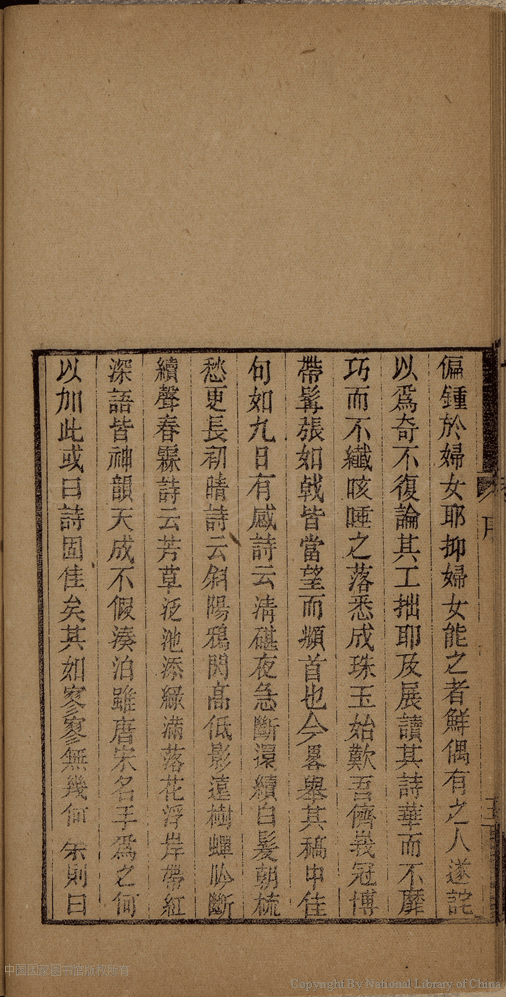 偏鍾於婦女耶抑婦女能之者鮮偶有之人遂詫
以爲奇不復論其工拙耶及展讀其詩華而不靡
巧而不纖咳唾之落悉成珠玉始歎吾儕峩冠博
帶髯張如戟皆當望而頫首也今畧舉其稿中佳
句如九日有感詩云清碪夜急斷還續白髮朝梳
愁更長初晴詩云斜陽鴉閃高低影遠樹蟬吟斷
續聲春霖詩云芳草泛池添綠滿落花浮岸帶紅
深語皆神韻天成不假湊泊雖唐宋名手爲之何
以加此或曰詩固佳矣其如寥寥無幾何余則曰
序
五
中国国家图书馆版权所有
Copyright By National Library of China